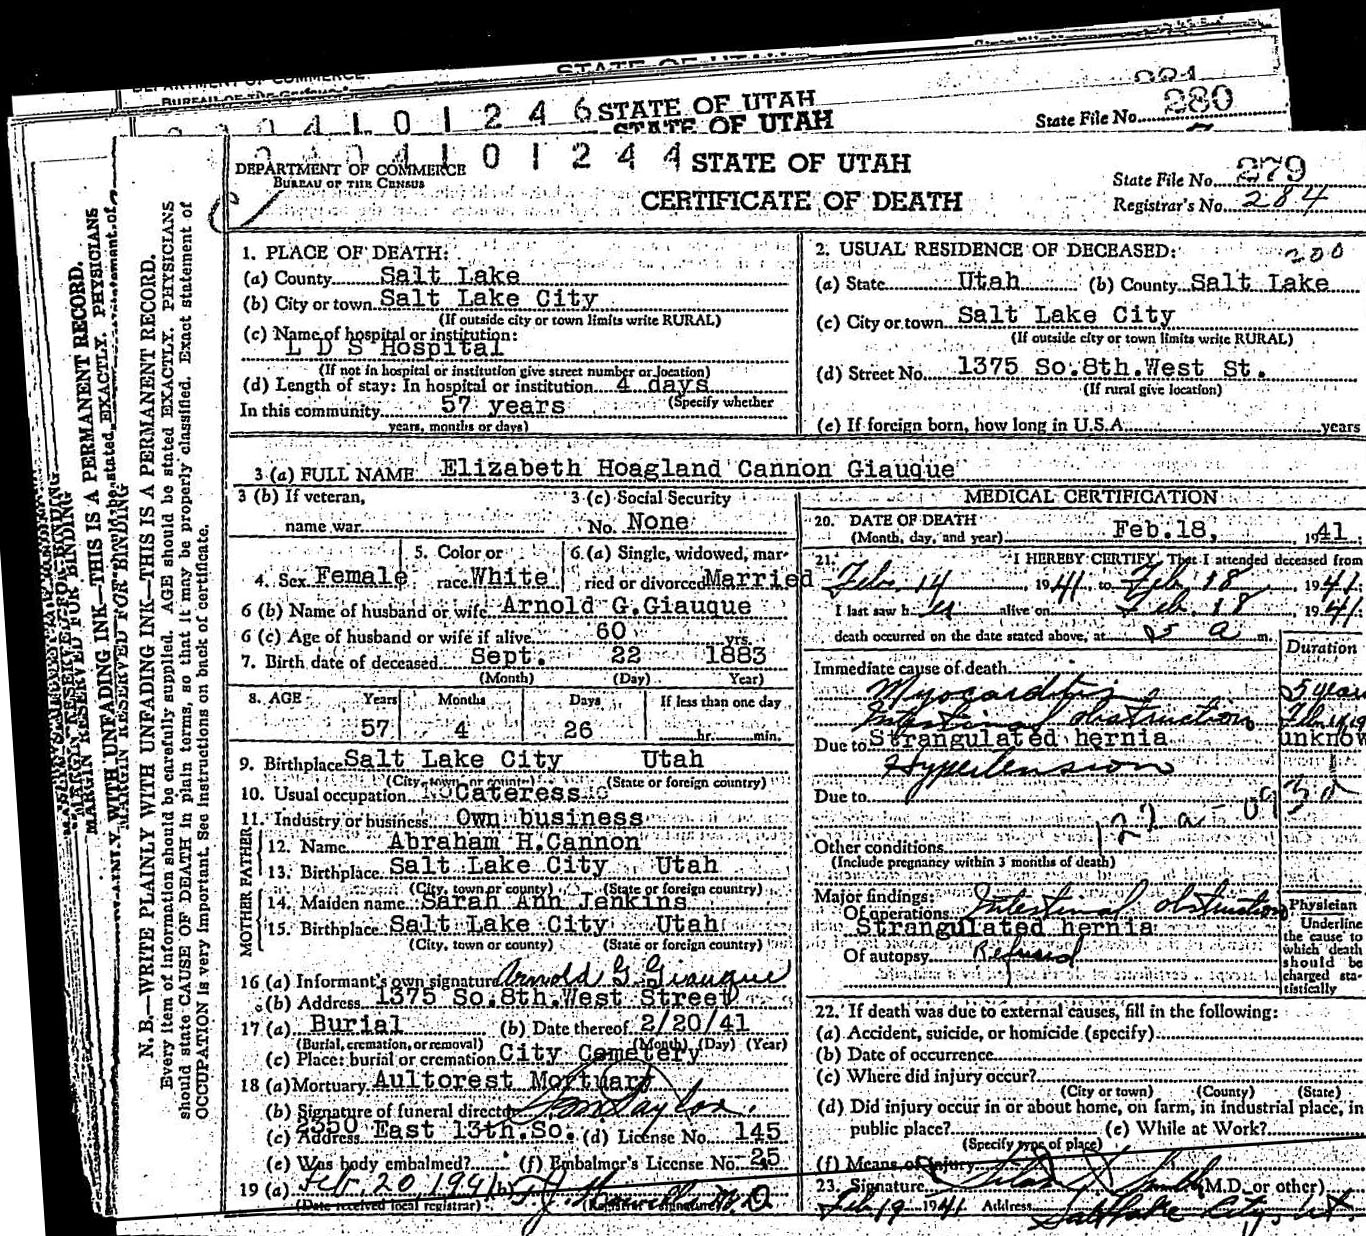 STATE OF UTAH
280
State File No.
STATE OF UTAH
DEPARTMENT OF COMMERCE
BUREAU OF THE CENSUS
STATE OF UTAH
CERTIFICATE OF DEATH
State File No. 279
Registrar's No. 284
MARGIN RESERVED FOR BINDING
N. B.—WRITE PLAINLY WITH UNFADING INK—THIS IS A PERMANENT RECORD.
Every item of information should be carefully supplied. AGE should be stated EXACTLY. PHYSICIANS
should state CAUSE OF DEATH in plain terms, so that it may be properly classified. Exact statement of
OCCUPATION is very important. See instructions on back of certificate.
1. PLACE OF DEATH:
(a) County Salt Lake
(b) City or town Salt Lake City
(If outside city or town limits write RURAL)
(c) Name of hospital or institution:
L D S Hospital
(If not in hospital or institution give street number or location)
(d) Length of stay: In hospital or institution 4 days
(Specify whether
In this community 57 years
years, months or days)
2. USUAL RESIDENCE OF DECEASED: 200
(a) State Utah (b) County Salt Lake
(c) City or town Salt Lake City
(If outside city or town limits write RURAL)
(d) Street No. 1375 So.8th.West St.
(If rural give location)
(e) If foreign born, how long in U.S.A. years
3 (a) FULL NAME Elizabeth Hoagland Cannon Giauque
3 (b) If veteran,
name war
3 (c) Social Security
No. None
4. Sex Female
5. Color or
race White
6.(a) Single, widowed, mar-
ried or divorced Married
6 (b) Name of husband or wife Arnold G.Giauque
6 (c) Age of husband or wife if alive 60 yrs.
7. Birth date of deceased Sept. 22 1883
(Month) (Day) Year)
8. AGE Years Months Days If less than one day
57 4 26 hr. min.
9. Birthplace Salt Lake City Utah
(City, town, or county) (State or foreign country)
10. Usual occupation Cateress
11. Industry or business Own business
FATHER
12. Name Abraham H.Cannon
13. Birthplace Salt Lake City Utah
(City, town or county) (State or foreign country)
MOTHER
14. Maiden name Sarah Ann Jenkins
15. Birthplace Salt Lake City Utah
(City, town or county) (State or foreign country)
16 (a) Informant's own signature Arnold G. Giauque
(b) Address 1375 So.8th.West Street
17 (a) Burial (b) Date thereof 2/20/41
(Burial, cremation, or removal) (Month) (Day) (Year)
(c) Place: burial or cremation City Cemetery
18 (a) Mortuary Aultorest Mortuary
(b) Signature of funeral director
(c) Address 2350 East 13th.So. (d) License No. 145
(e) Was body embalmed? (f) Embalmer's License No. 25
19 (a) Feb. 20, 1941 (b)
(Date received local registrar) (Registrar's signature)
MEDICAL CERTIFICATION
20. DATE OF DEATH
(Month, day, and year) Feb.18, 1941
21. I HEREBY CERTIFY, That I attended deceased from
Feb. 14 1941 to Feb. 18 1941.
I last saw her alive on Feb. 18 1941
death occurred on the date stated above, at 5 a m.
Duration
Immediate cause of death
Myocarditis 5 years
Intestinal obstruction
Due to Strangulated hernia unknow
Hypertension
Due to
Other conditions
(Include pregnancy within 3 months of death)
Major findings:
Of operations Intestinal obstruction
Strangulated hernia
Of autopsy Refused
Physician
Underline
the cause to
which death
should be
charged sta-
tistically
22. If death was due to external causes, fill in the following:
(a) Accident, suicide, or homicide (specify)
(b) Date of occurrence
(c) Where did injury occur?
(City or town) (County) (State)
(d) Did injury occur in or about home, on farm, in industrial place, in
public place? (e) While at Work?
(Specify type of place)
(f) Means of injury
23. Signature Silas Smith (M.D. or other)
Feb 19 1941 Address Salt Lake City, Ut